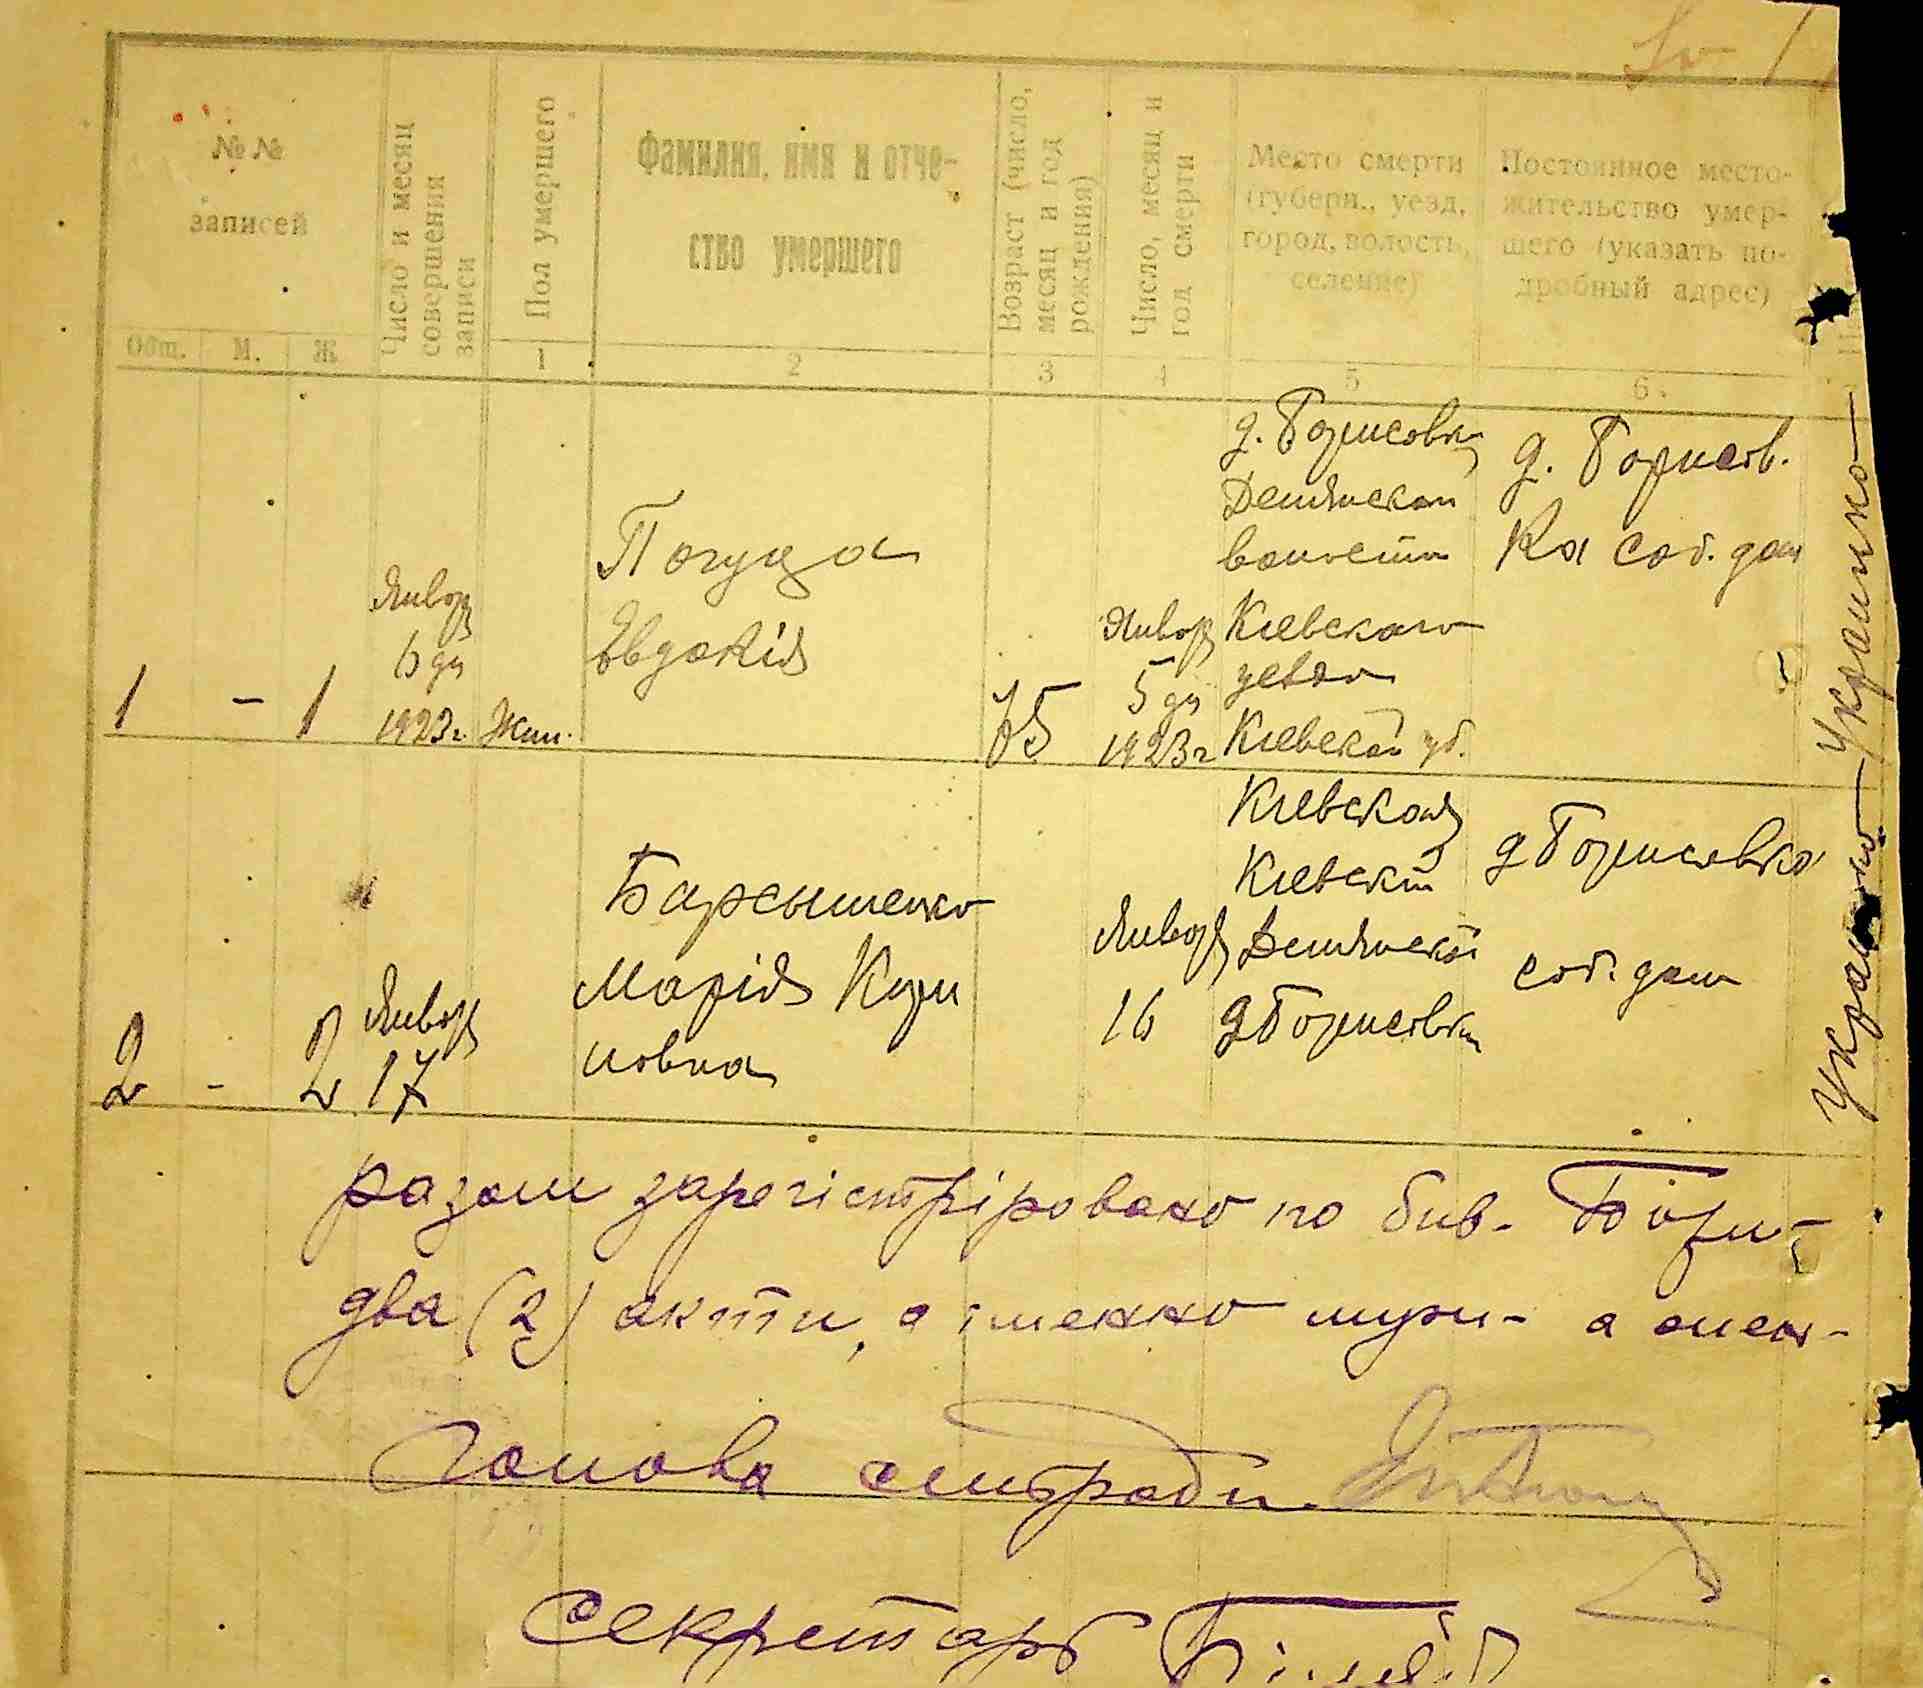 № №
записей
Общ. М. Ж
Число и месяц
совершения
записи
Пол умершего
1
Фамилия, имя и отче-
ство умершего
2
Возраст (число,
месяц и год
рождения)
3
Число, месяц и
год смерти
4
Место смерти
(губерн., уезд,
город, волость,
селение)
5
Постоянное место-
жительство умер-
шего (указать по-
дробный адрес)
6
1 - 1
Январ
6 дн
1923г.
Жен.
Погуца
Евдокія
Январ
5 дн
1923г
д. Борисовк
волости
Киевского
уезда
Киевской губ.
д. Борисов.
ка соб. дом
2 - 2
Январ
17
Марія Кири
ловна
Январ
16
Киевской
Киевск
д Борисовк
д Борисовка
соб. дом
Украинко
Украинко
разом зарегістріровано по бив. Бори-
два (2) акти, а іменно муж- а жен-
Голова сільради
Секретарь